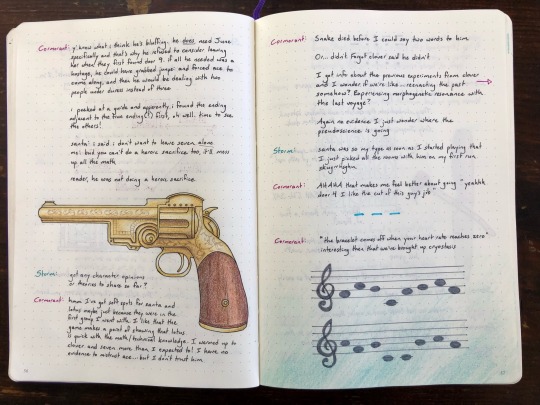 Cormorant: y'know what i think he's bluffing. he does need June
specifically and that's why he refused to consider leaving
her when they first found door 9. if all he needed was a
hostage, he could have grabbed junpei and forced ace to
come along, and then he would be dealing with two
people under duress instead of three
i peeked at a guide and apparently i found the ending
adjacent to the true ending(!) first, oh well. time to see
the others!
santa: i said i don't want to leave seven alone
me: but you can't do a heroic sacrifice too, it'll mess
up all the math
reader, he was not doing a heroic sacrifice
Storm: got any character opinions
or theories to share so far?
Cormorant: hmm I've got soft spots for santa and
lotus maybe just because they were in the
first group I went with. I like that the
game makes a point of showing that lotus
is quick with the math/technical knowledge. I warmed up to
clover and seven more than I expected to! I have no
evidence to mistrust ace... but I don't trust him.
Cormorant: Snake died before I could say two words to him
Or... didn't. Forgot clover said he didn't
I got info about the previous experiments from clover
and I wonder if we're like... reenacting the past
somehow? Experiencing morphogenetic resonance with
the last voyage?
Again no evidence I just wonder where the
pseudoscience is going
Storm: santa was so my type as soon as I started playing that
I just picked all the rooms with him on my first run
Cormorant: AHAHA that makes me feel better about going "yeahhh
door 4 I like the cut of this guy's jib"
Cormorant: "the bracelet comes off when your heart rate reaches zero"
interesting then that we've brought up cryostasis